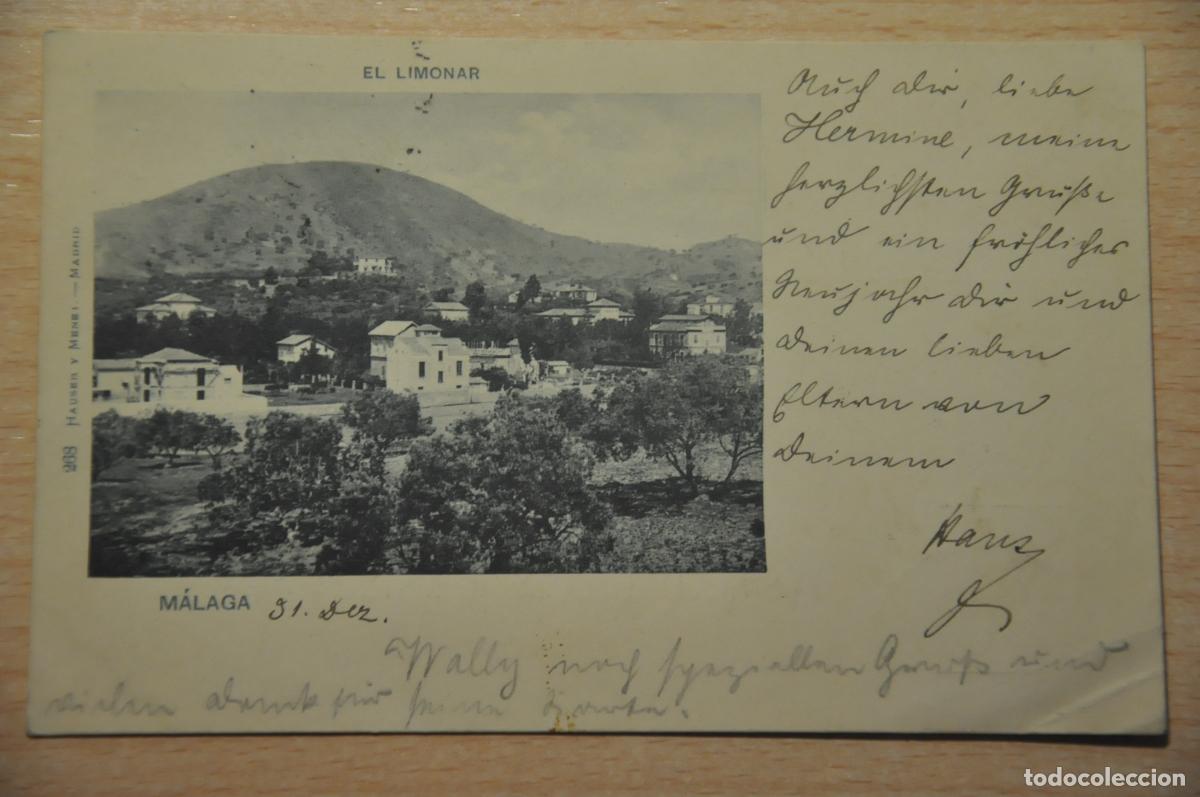 EL LIMONAR
Auch Dir, liebe
Hermine, meine
herzlichsten Grüße
und ein fröhliches
Neujahr Dir und
Deinen lieben
Eltern von
Deinem
Hans
268 HAUSER Y MENET.—MADRID
MÁLAGA 31. Dez.
Wally noch speziellen Gruß und
vielen Dank für seine Karte.
todocoleccion